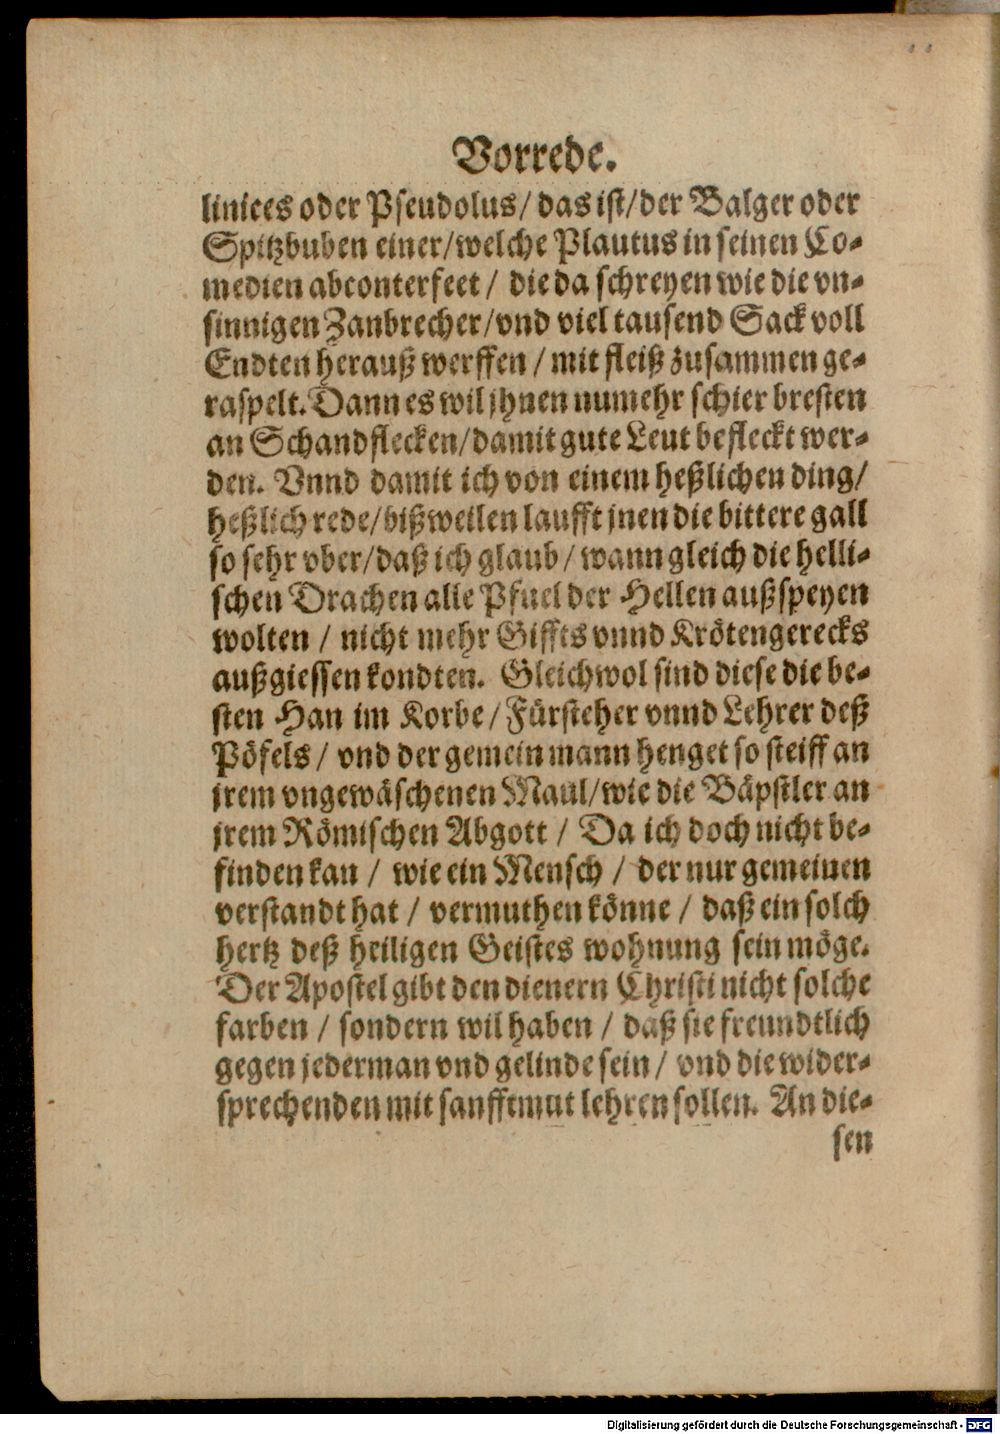 Vorrede.
linices oder Pseudolus/ das ist/ der Balger oder
Spitzbuben einer/welche Plautus in seinen Co-
medien abconterfeet / die da schreyen wie die vn-
sinnigen Zanbrecher/vnd viel tausend Sack voll
Endten herauß werffen / mit fleiß zusammen ge-
raspelt. Dann es wil jhnen numehr schier bresten
an Schandflecken/damit gute Leut befleckt wer-
den. Vnnd damit ich von einem heßlichen ding/
heßlich rede/bißweilen laufft jnen die bittere gall
so sehr vber/daß ich glaub / wann gleich die helli-
schen Drachen alle Pfuel der Hellen außspeyen
wolten / nicht mehr Giffts vnnd Krötengerecks
außgiessen kondten. Gleichwol sind diese die be-
sten Han im Korbe / Fürsteher vnnd Lehrer deß
Pöfels / vnd der gemein mann henget so steiff an
jrem vngewäschenen Maul/wie die Bäpstler an
jrem Römischen Abgott / Da ich doch nicht be-
finden kan / wie ein Mensch / der nur gemeinen
verstandt hat / vermuthen könne / daß ein solch
hertz deß heiligen Geistes wohnung sein möge.
Der Apostel gibt den dienern Christi nicht solche
farben / sondern wil haben / daß sie freundtlich
gegen jederman vnd gelinde sein / vnd die wider-
sprechenden mit sanfftmut lehren sollen. An die-
sen
Digitalisierung gefördert durch die Deutsche Forschungsgemeinschaft - DFG